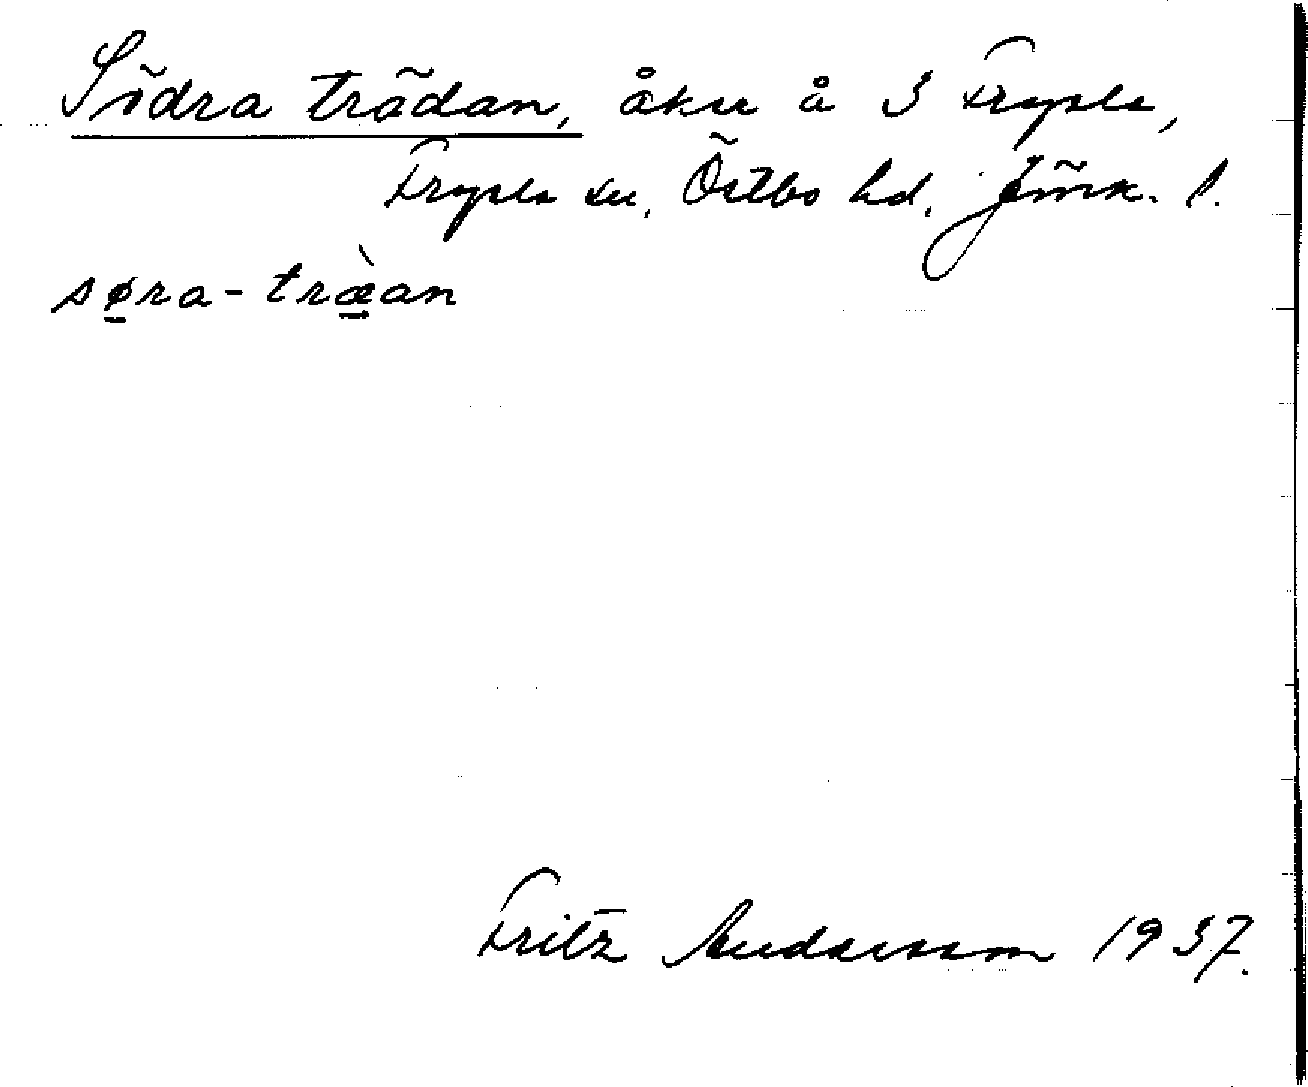 Södra trädan, åker å 3 Fryele,
Fryele sn, Östbo hd, Jönk. l.
søra-træ̀an
Fritz Andersson 1937.